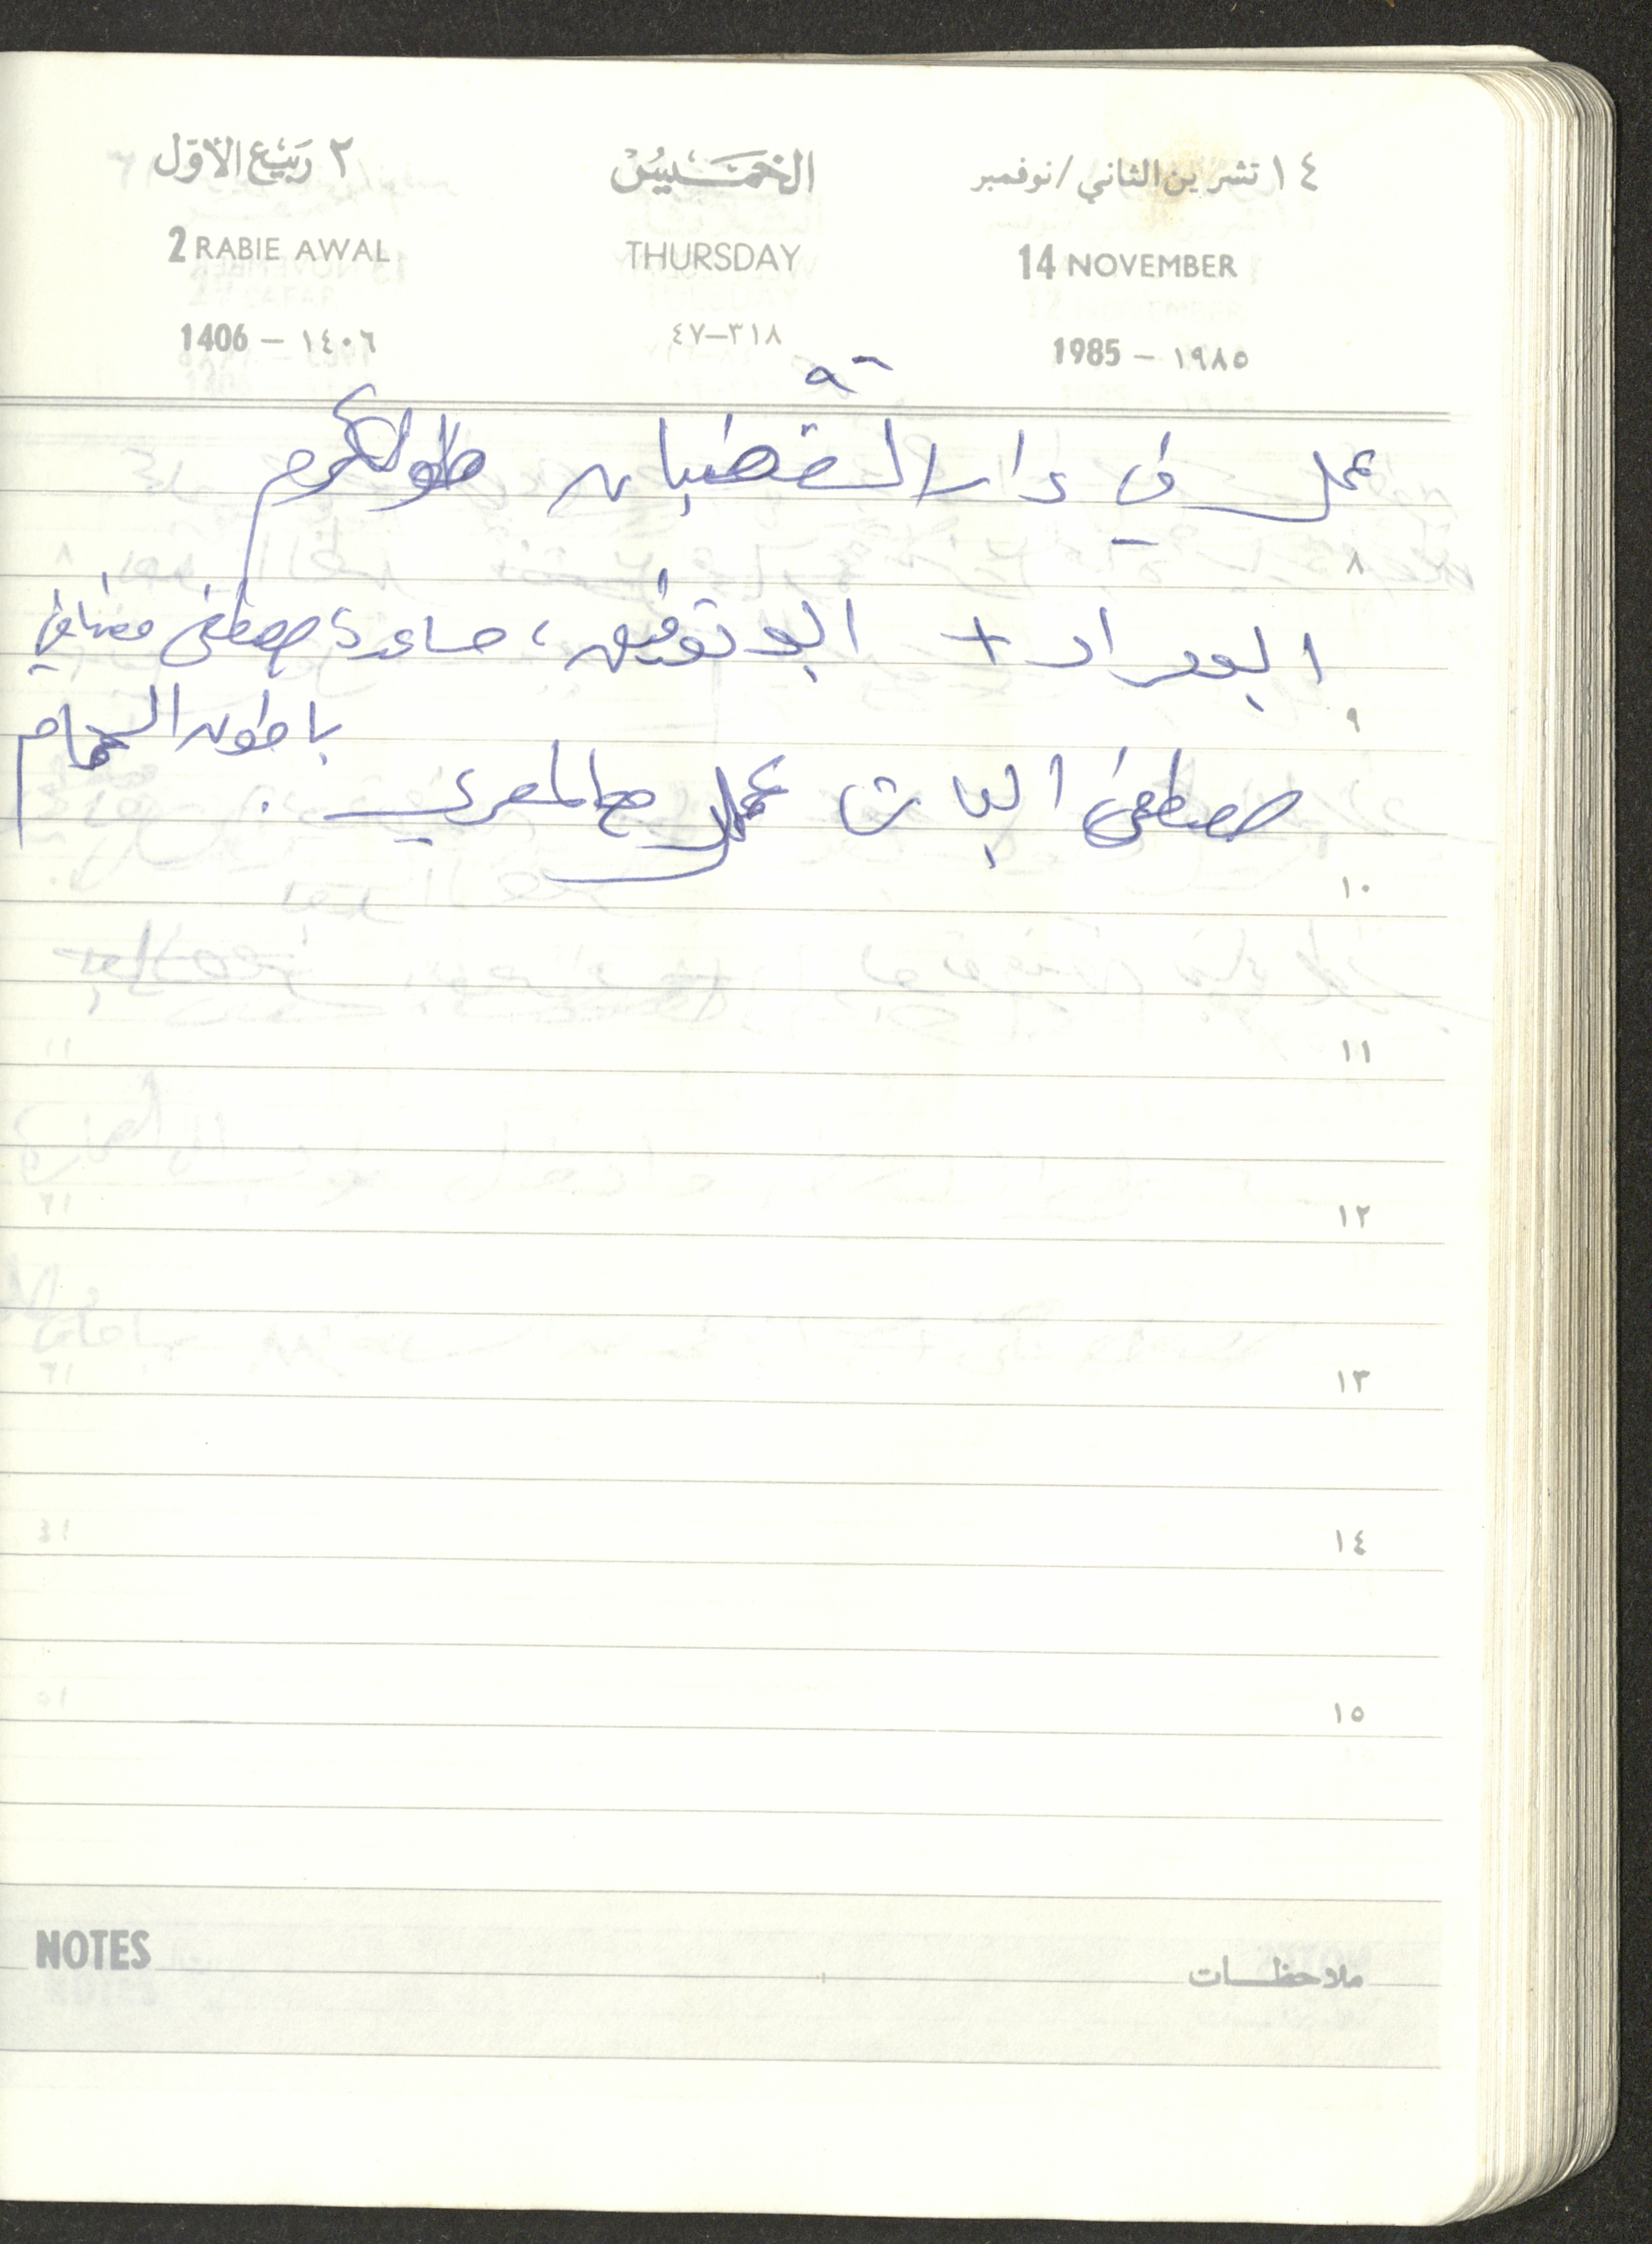 ١٤ تشرين الثاني/نوفمبر الخميس ٢ ربيع الأول
14 NOVEMBER THURSDAY 2 RABIE AWAL
1985 – ١٩٨٥ ٣١٨–٤٧ 1406 – ١٤٠٦
عمل في دار القضبان طولكرم
٨
ابو مراد + ابو توفيق، مصطفى
٩
باطون الحمام
مصطفى البات عمل مع المصري .
١٠
١١
١٢
١٣
١٤
١٥
NOTES ملاحظات